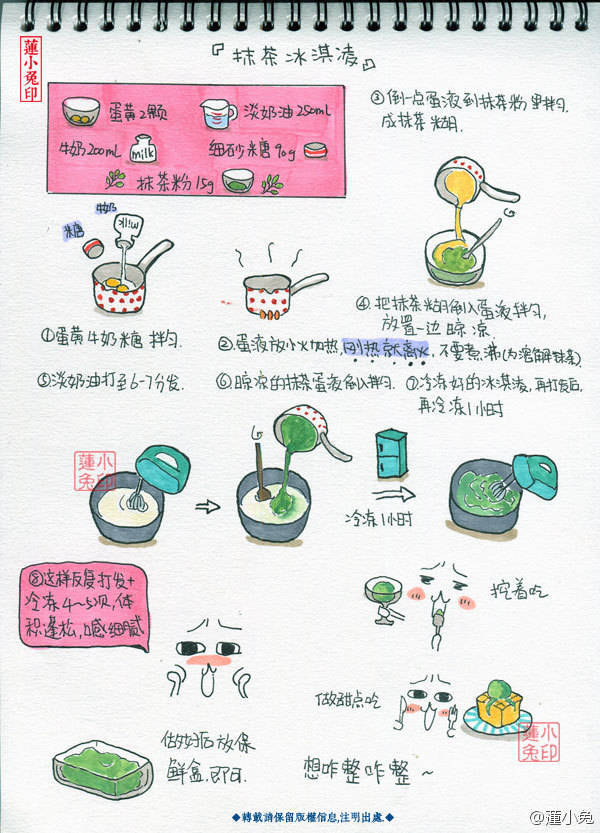 蓮小兔印
『抹茶冰淇凌』
蛋黄2颗
淡奶油250mL
牛奶200mL
milk
细砂米糖90g
抹茶粉15g
③倒一点蛋液到抹茶粉里拌匀.
成抹茶糊.
牛奶
糖
milk
①蛋黄牛奶糖 拌匀.
②蛋液放小火加热,刚热就离火,不要煮沸(为溶解抹茶)
④把抹茶糊倒入蛋液拌匀,
放置一边 晾凉.
⑤淡奶油打至6-7分发.
⑥晾凉的抹茶蛋液倒入拌匀.
⑦冷冻好的冰淇凌,再打发后.
再冷冻1小时
蓮小兔印
冷冻1小时
⑧这样反复打发+
冷冻4~5次,体
积蓬松,口感细腻
挖着吃
做甜点吃
蓮小兔印
做好后放保
鲜盒,即可.
想咋整咋整~
◆轉載請保留版權信息,注明出處.◆
@蓮小兔